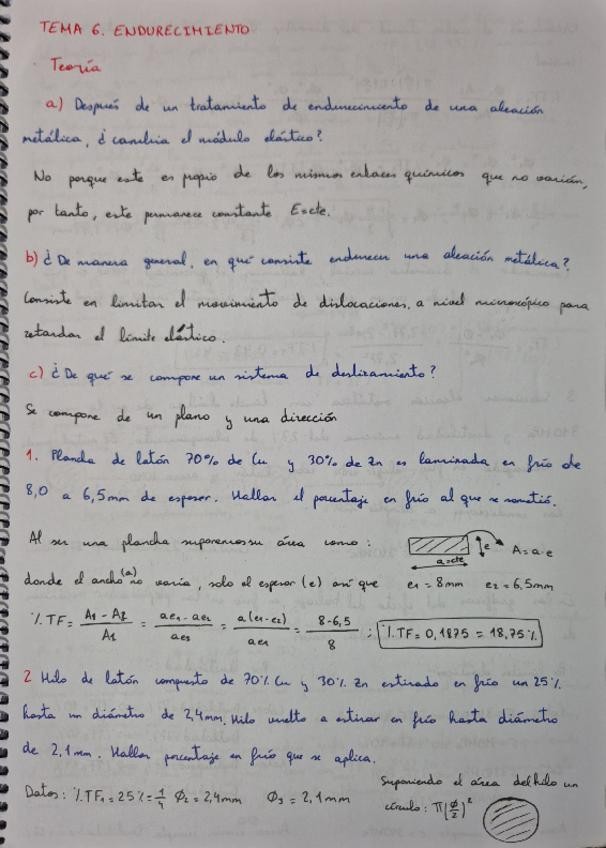 TEMA 6. ENDURECIMIENTO
Teoría
a) Después de un tratamiento de endurecimiento de una aleación
metálica, ¿cambia el módulo elástico?
No porque este es propio de los mismos enlaces químicos que no varían,
por tanto, este permanece constante E=cte.
b) ¿De manera general, en qué consiste endurecer una aleación metálica?
Consiste en limitar el movimiento de dislocaciones, a nivel microscópico para
retardar el límite elástico.
c) ¿De qué se compone un sistema de deslizamiento?
Se compone de un plano y una dirección
1. Plancha de latón 70% de Cu y 30% de Zn es laminada en frío de
8,0 a 6,5mm de espesor. Hallar el porcentaje en frío al que se sometió.
Al ser una plancha suponemos su área como:
e
a=cte
A=a·e
donde el ancho (a) no varía, solo el espesor (e) así que e1=8mm e2=6,5mm
%TF = (A1-A2)/A1 = (ae1-ae2)/ae1 = a(e1-e2)/ae1 = (8-6,5)/8 ; %TF=0,1875=18,75%
2 Hilo de latón compuesto de 70% Cu y 30% Zn estirado en frío un 25%
hasta un diámetro de 2,4mm. Hilo vuelto a estirar en frío hasta diámetro
de 2,1mm. Hallar porcentaje en frío que se aplica.
Datos: %TF1=25%=1/4 Φ2=2,4mm Φ3=2,1mm
Suponiendo el área del hilo un
círculo: π(Φ/2)²